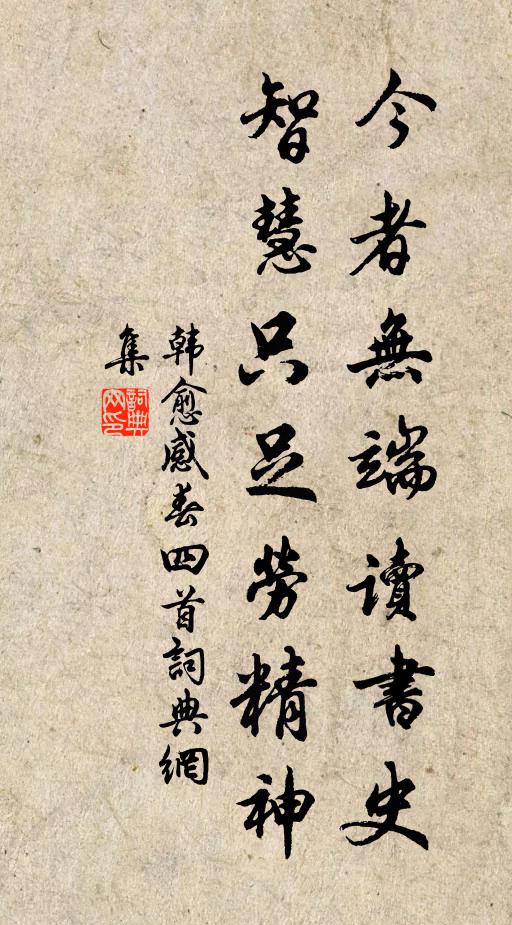 今者無端讀書史
智慧只足勞精神
韩愈感春四首詞典網
集
詞典
网印